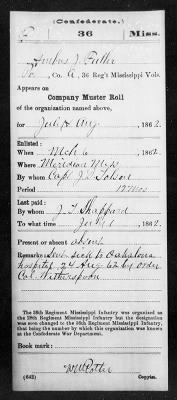 (Confederate.)
P 36 Miss.
J. Fuller
Co. A, 36 Reg't Mississippi Vols.
Appears on
Company Muster Roll
of the organization named above,
for July & Aug, 1862.
Enlisted:
When Mch 6, 1862.
Where Meridian Miss
By whom Capt J.
Period 12 mos
Last paid:
By whom J. T. Sheppard
To what time 1, 1862.
Present or absent absent
Remarks: to Oakalona
hospital 24 Aug 62 by order
Col. Witherspoon
The 36th Regiment Mississippi Infantry was organized as
the 28th Regiment Mississippi Infantry but the designation
was soon changed to the 36th Regiment Mississippi Infantry,
that being the number by which this organization was known
at the Confederate War Department.
Book mark:
(642) Copyist.